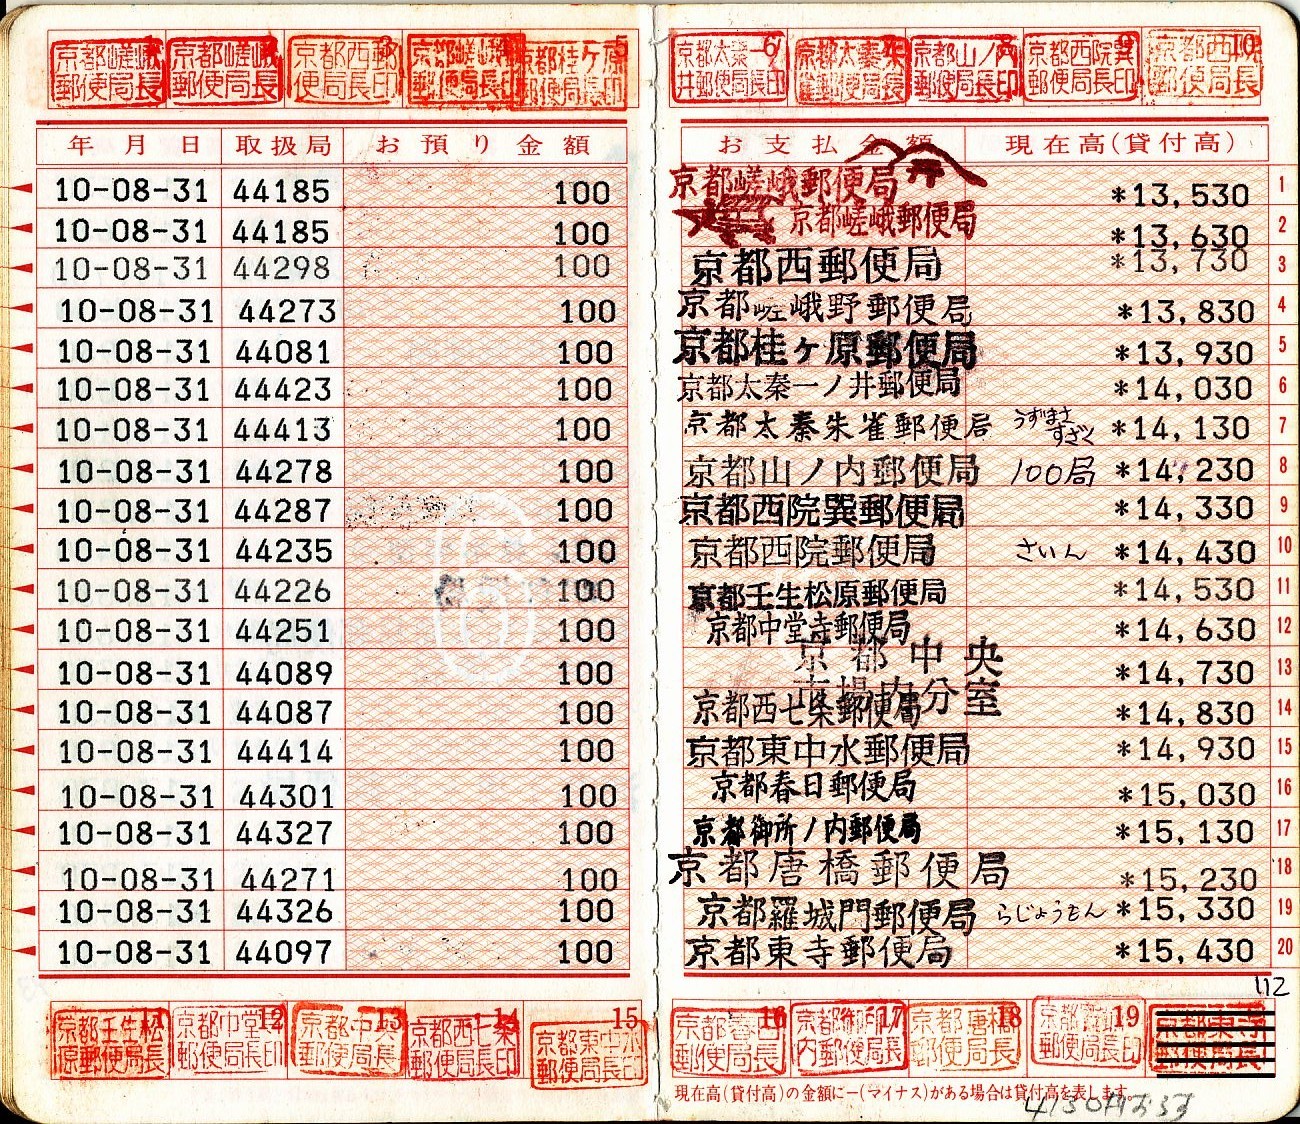 京都嵯峨 郵便局長 1
京都嵯峨 郵便局長 2
京都西郵 便局長印 3
京都嵯峨 郵便局長 4
京都桂ケ原 郵便局長印 5
京都太秦一ノ 井郵便局長印 6
京都太秦朱 雀郵便局長 7
京都山ノ内 郵便局長印 8
京都西院巽 郵便局長印 9
京都西院 郵便局長 10
年月日 取扱局 お預り金額 お支払金額 現在高(貸付高)
10-08-31 44185 100 京都嵯峨郵便局 *13,530 1
10-08-31 44185 100 京都嵯峨郵便局 *13,630 2
10-08-31 44298 100 京都西郵便局 *13,730 3
10-08-31 44273 100 京都嵯峨野郵便局 *13,830 4
10-08-31 44081 100 京都桂ヶ原郵便局 *13,930 5
10-08-31 44423 100 京都太秦一ノ井郵便局 *14,030 6
10-08-31 44413 100 京都太秦朱雀郵便局 うずまさ すざく *14,130 7
10-08-31 44278 100 京都山ノ内郵便局 100局 *14,230 8
10-08-31 44287 100 京都西院巽郵便局 *14,330 9
10-08-31 44235 100 京都西院郵便局 さいん *14,430 10
10-08-31 44226 100 京都壬生松原郵便局 *14,530 11
10-08-31 44251 100 京都中堂寺郵便局 *14,630 12
10-08-31 44089 100 京都中央市場内分室 *14,730 13
10-08-31 44087 100 京都西七条郵便局 *14,830 14
10-08-31 44414 100 京都東中水郵便局 *14,930 15
10-08-31 44301 100 京都春日郵便局 *15,030 16
10-08-31 44327 100 京都御所ノ内郵便局 *15,130 17
10-08-31 44271 100 京都唐橋郵便局 *15,230 18
10-08-31 44326 100 京都羅城門郵便局 らじょうもん *15,330 19
10-08-31 44097 100 京都東寺郵便局 *15,430 20
112
京都壬生松 原郵便局長 11
京都中堂寺 郵便局長印 12
京都中央 郵便局長 13
京都西七条 郵便局長印 14
京都東中水 郵便局長印 15
京都春日 郵便局長 16
京都御所ノ 内郵便局長 17
京都唐橋 郵便局長 18
郵便局長印 19
現在高(貸付高)の金額に−(マイナス)がある場合は貸付高を表します。